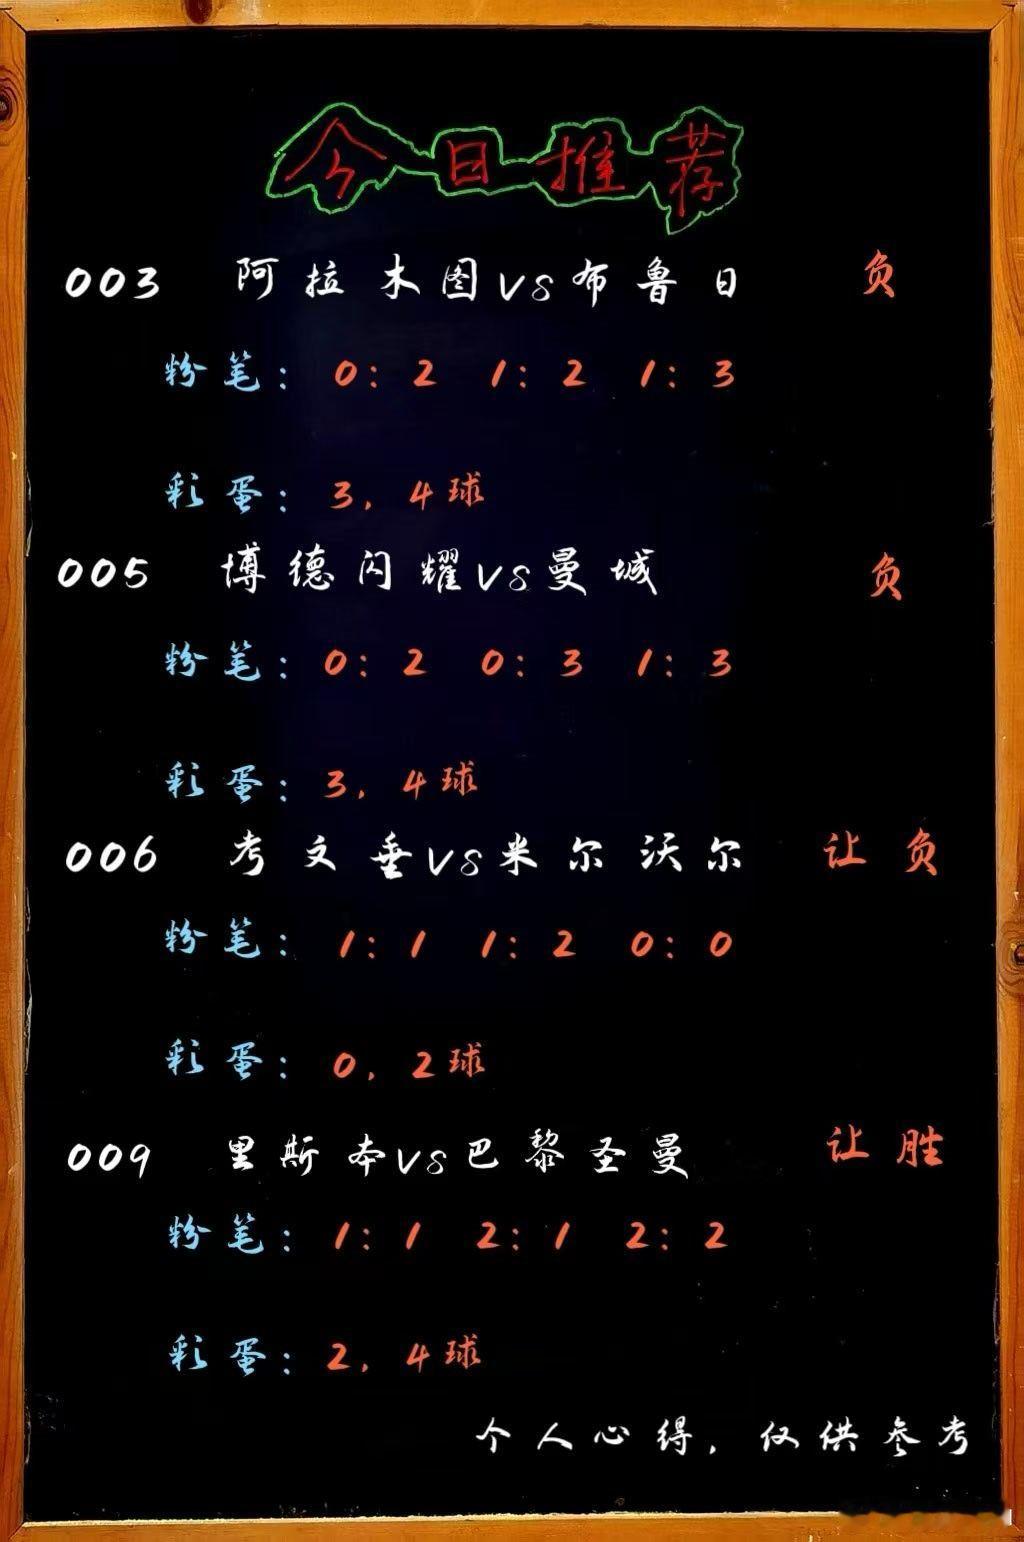 今日推荐
003 阿拉木图vs布鲁日 负
粉笔：0：2 1：2 1：3
彩蛋：3，4球
005 博德闪耀vs曼城 负
粉笔：0：2 0：3 1：3
彩蛋：3，4球
006 考文垂vs米尔沃尔 让负
粉笔：1：1 1：2 0：0
彩蛋：0，2球
009 里斯本vs巴黎圣曼 让胜
粉笔：1：1 2：1 2：2
彩蛋：2，4球
个人心得，仅供参考